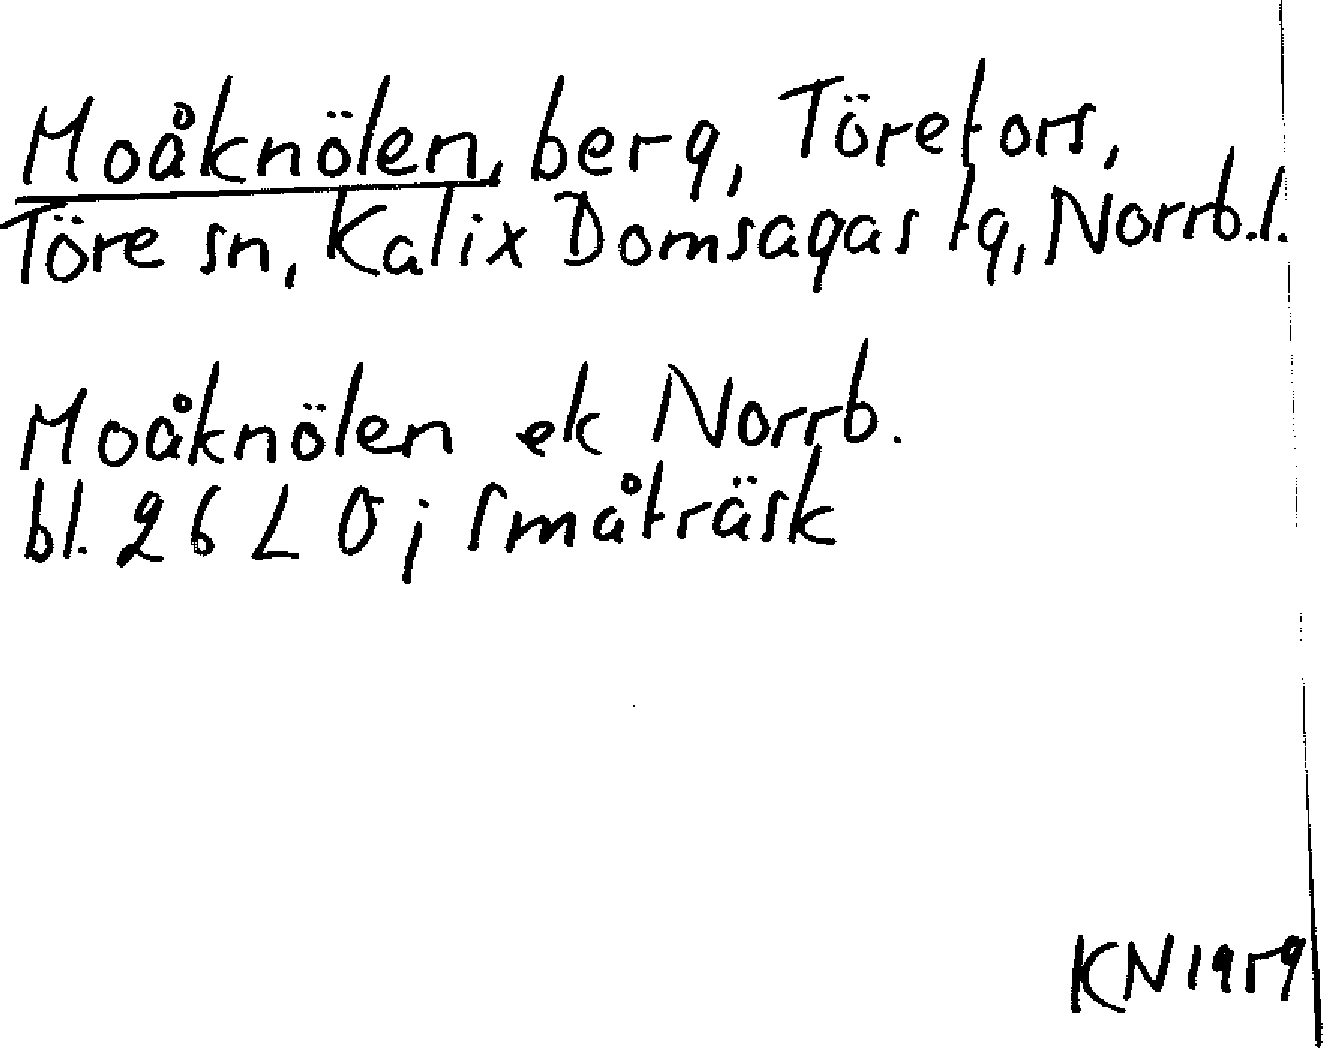 Moåknölen, berg, Törefors,
Töre sn, Kalix Domsagas tg, Norrb.l.
Moåknölen ek Norrb.
bl. 26 L 0j Småträsk
KN 1959